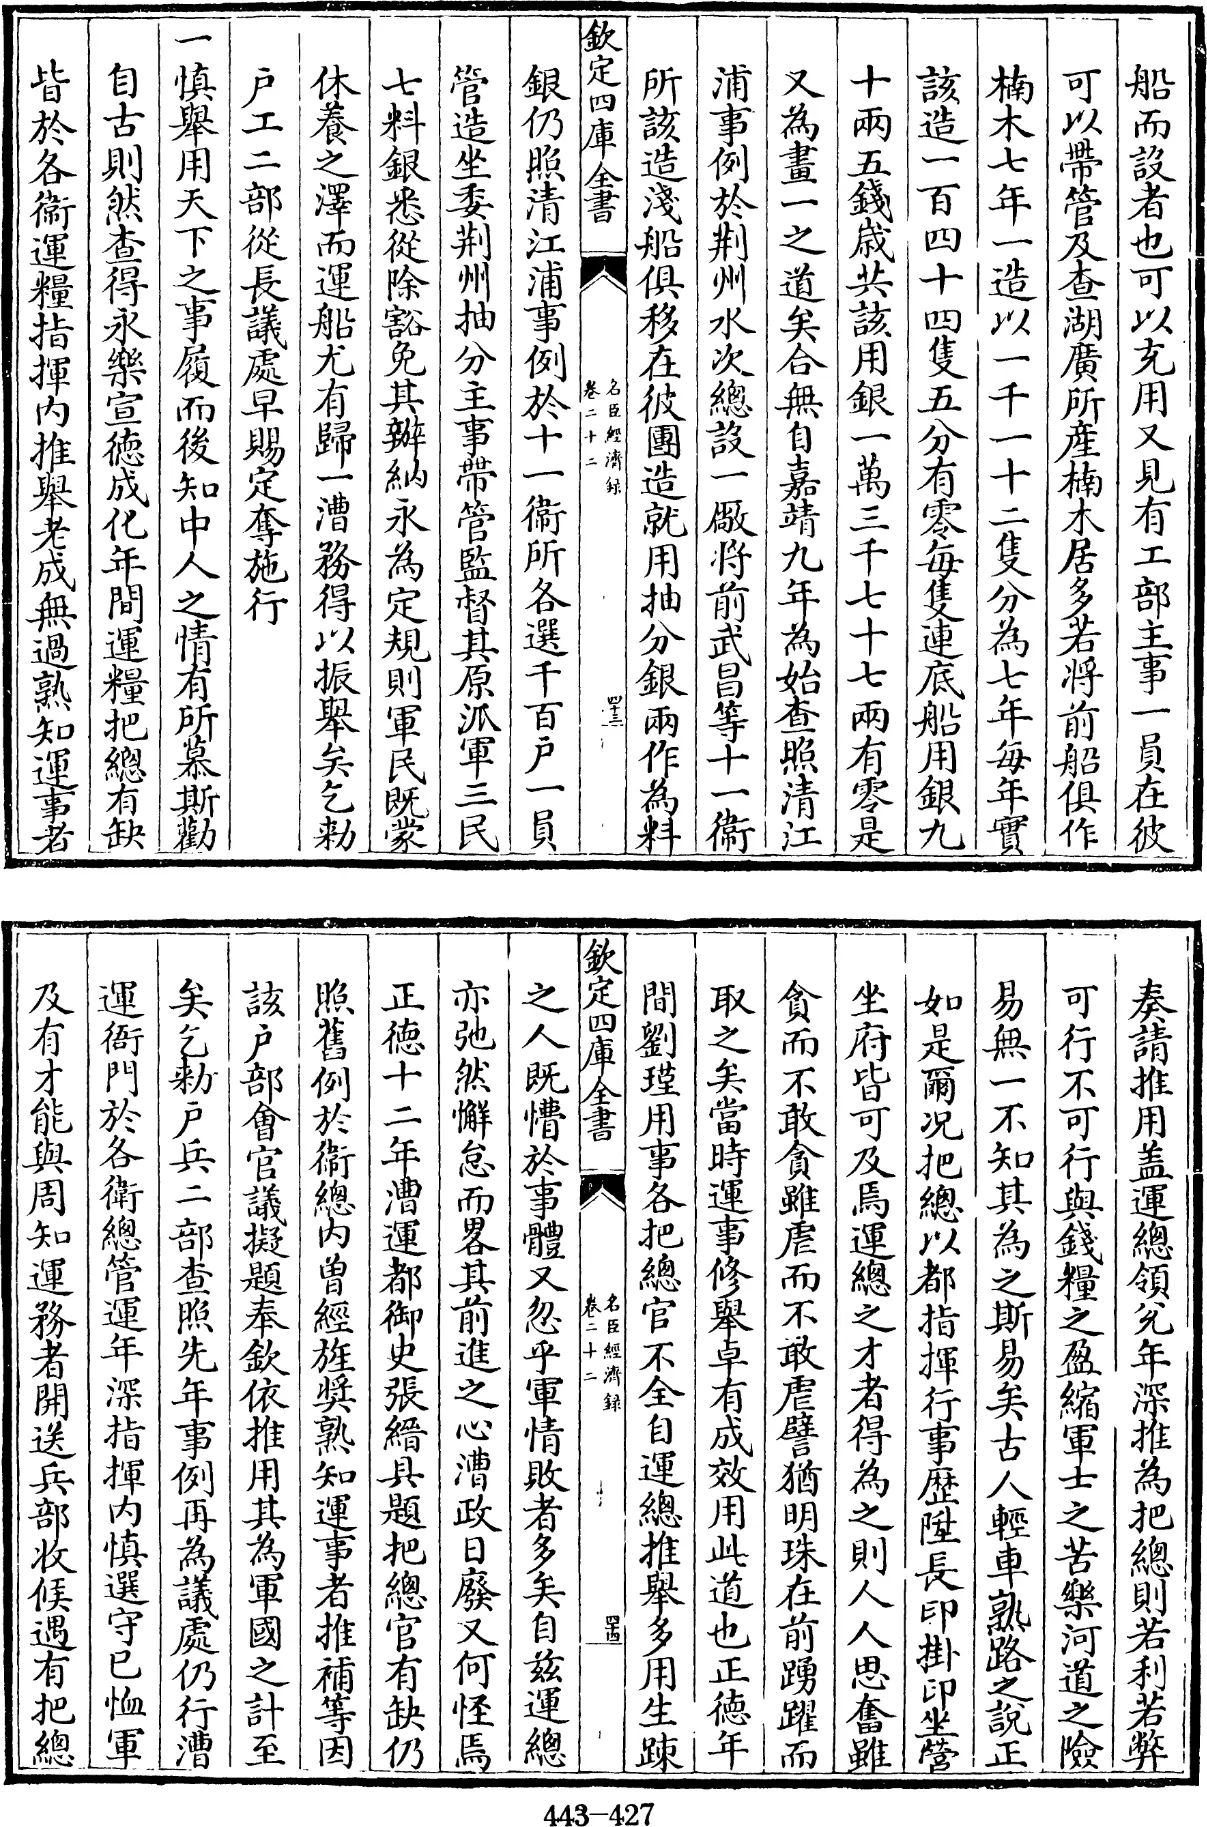 船而設者也可以充用又見有工部主事一員在彼
可以帶管及查湖廣所產楠木居多若將前船俱作
楠木七年一造以一千一十二隻分為七年每年實
該造一百四十四隻五分有零每隻連底船用銀九
十兩五錢歲共該用銀一萬三千七十七兩有零是
又為畫一之道矣合無自嘉靖九年為始查照清江
浦事例於荆州水次總設一厰将前武昌等十一衞
所該造淺船俱移在彼團造就用抽分銀兩作為料
欽定四庫全書
名臣經濟録
卷二十二
四十三
銀仍照清江浦事例於十一衞所各選千百戶一員
管造坐委荆州抽分主事帶管監督其原派軍三民
七料銀悉從除豁免其辦納永為定規則軍民既蒙
休養之澤而運船尤有歸一漕務得以振舉矣乞勅
戶工二部從長議處早賜定奪施行
一慎舉用天下之事履而後知中人之情有所慕斯勸
自古則然查得永樂宣德成化年間運糧把總有缺
皆於各衞運糧指揮内推舉老成無過熟知運事者
奏請推用盖運總領兌年深推為把總則若利若弊
可行不可行與錢糧之盈縮軍士之苦樂河道之險
易無一不知其為之斯易矣古人輕車熟路之說正
如是爾况把總以都指揮行事歴陞長印掛印坐營
坐府皆可及焉運總之才者得為之則人人思奮雖
貪而不敢貪雖虐而不敢虐譬猶明珠在前踴躍而
取之矣當時運事修舉卓有成效用此道也正德年
間劉瑾用事各把總官不全自運總推舉多用生踈
欽定四庫全書
名臣經濟録
卷二十二
四十四
之人既懵於事體又忽乎軍情敗者多矣自兹運總
亦弛然懈怠而畧其前進之心漕政日廢又何怪焉
正德十二年漕運都御史張縉具題把總官有缺仍
照舊例於衞總内曾經旌奬熟知運事者推補等因
該戶部會官議擬題奉欽依推用其為軍國之計至
矣乞勅戶兵二部查照先年事例再為議處仍行漕
運衙門於各衞總管運年深指揮内慎選守己恤軍
及有才能與周知運務者開送兵部收候遇有把總
443-427